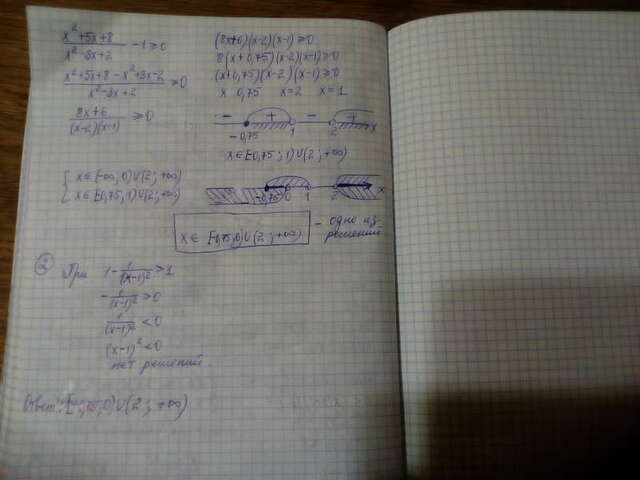 x²+5x+8 / x²-3x+2 - 1 ≥ 0
x²+5x+8-x²+3x-2 / x²-3x+2 ≥ 0
8x+6 / (x-2)(x-1) ≥ 0
(8x+6)(x-2)(x-1) ≥ 0
8(x+0,75)(x-2)(x-1) ≥ 0
(x+0,75)(x-2)(x-1) ≥ 0
x 0,75 x=2 x=1
- + - +
-0,75 1 2 x
x ∈ [-0,75; 1) ∪ (2; +∞)
{ x ∈ (-∞; 0) ∪ (2; +∞)
x ∈ [-0,75; 1) ∪ (2; +∞)
-0,75 0 1 2 x
x ∈ [-0,75; 0) ∪ (2; +∞) - одно из
решений
② При 1 - 1/(x-1)² > 1
- 1/(x-1)² > 0
1/(x-1)² < 0
(x-1)² < 0
нет решений
Ответ: [-0,75; 0) ∪ (2; +∞)